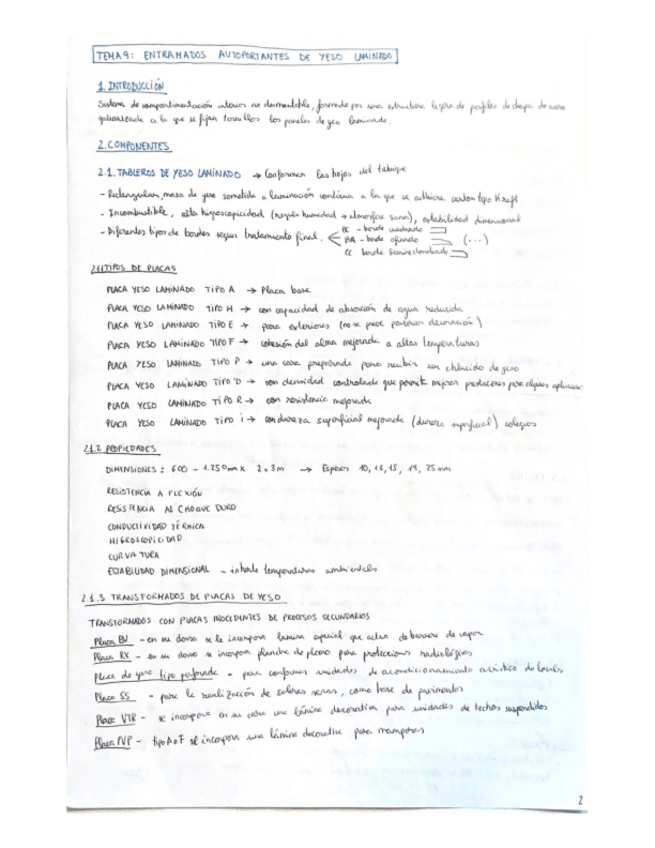 TEMA 9: ENTRAMADOS AUTOPORTANTES DE YESO LAMINADO
1. INTRODUCCIÓN
Sistema de compartimentación interior no desmontable, formado por una estructura ligera de perfiles de chapa de acero
galvanizado a la que se fijan tornillos los paneles de yeso laminado.
2. COMPONENTES
2.1. TABLEROS DE YESO LAMINADO → Conforman las hojas del tabique
- Rectangular, masa de yeso sometida a laminación continua a la que se adhiere carton tipo Kraft
- Incombustible, alta higroscopicidad (regula humedad → atmosfera sana), estabilidad dimensional
- Diferentes tipos de bordes segun tratamiento final.
BC - borde cuadrado
BA - borde afinado (...)
borde semiredondeado
2.1.1 TIPOS DE PLACAS
PLACA YESO LAMINADO TIPO A → Placa base
PLACA YESO LAMINADO TIPO H → con capacidad de absorción de agua reducida
PLACA YESO LAMINADO TIPO E → para exteriores (no se prevé posterior decoración)
PLACA YESO LAMINADO TIPO F → cohesión del alma mejorada a altas temperaturas
PLACA YESO LAMINADO TIPO P → una cara preparada para recibir un enlucido de yeso
PLACA YESO LAMINADO TIPO D → con densidad controlada que permite mejores para algunas
PLACA YESO LAMINADO TIPO R → con resistencia mejorada
PLACA YESO LAMINADO TIPO i → con dureza superficial mejorada (dureza superficial) colegios
2.1.2 PROPIEDADES
DIMENSIONES: 600 - 1.250 mm x 2 a 3m → Espesor 10, 13, 15, 19, 25 mm
RESISTENCIA A FLEXIÓN
RESISTENCIA AL CHOQUE DURO
CONDUCTIVIDAD TÉRMICA
HIGROSCOPICIDAD
CURVATURA
ESTABILIDAD DIMENSIONAL - temperaturas ambientales
2.1.3 TRANSFORMADOS DE PLACAS DE YESO
TRANSFORMADOS CON PLACAS PROCEDENTES DE PROCESOS SECUNDARIOS
Placa BV - en su dorso se le incorpora lamina especial que actua de barrera de vapor
Placa RX - en su dorso se incorpora plancha de plomo para protecciones radiológicas
Placa de yeso tipo perforada - para conformar unidades de acondicionamiento acústico de locales
Placa SS - para la realización de soleras secas, como base de pavimentos
Placa VTR - se incorpora en su cara una lámina decorativa para unidades de techos suspendidos
Placa PVP - tipo A o F se incorpora una lámina decorativa para mamparas
2